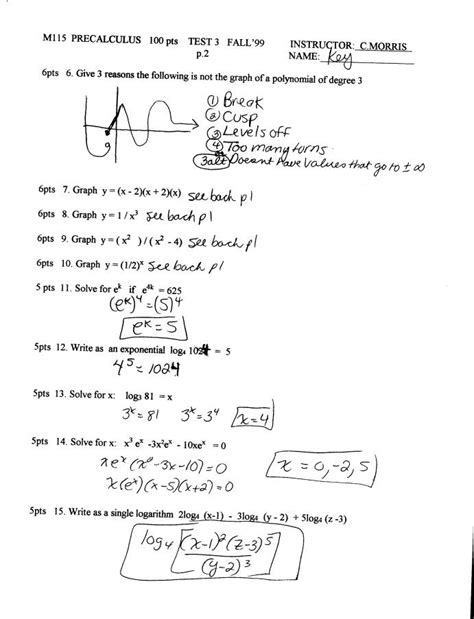 M115 PRECALCULUS 100 pts TEST 3 FALL'99 INSTRUCTOR: C.MORRIS
p.2 NAME: Key
6pts 6. Give 3 reasons the following is not the graph of a polynomial of degree 3
① Break
② Cusp
③ Levels off
④ Too many turns
3alt Doesnt have values that go to ± ∞
6pts 7. Graph y = (x - 2)(x + 2)(x) see back p1
6pts 8. Graph y = 1 / x³ see back p1
6pts 9. Graph y = (x² )/(x² - 4) see back p1
6pts 10. Graph y = (1/2)ˣ see back p1
5 pts 11. Solve for eᵏ if e⁴ᵏ = 625
(eᵏ)⁴ = (5)⁴
eᵏ = 5
5pts 12. Write as an exponential log₄ 1024 = 5
4⁵ = 1024
5pts 13. Solve for x: log₃ 81 = x
3ˣ = 81 3ˣ = 3⁴ x = 4
5pts 14. Solve for x: x³ eˣ -3x²eˣ - 10xeˣ = 0
xeˣ (x² - 3x - 10) = 0
x(eˣ)(x-5)(x+2) = 0
x = 0, -2, 5
5pts 15. Write as a single logarithm 2log₄ (x-1) - 3log₄ (y - 2) + 5log₄ (z -3)
log₄ [(x-1)²(z-3)⁵ / (y-2)³]